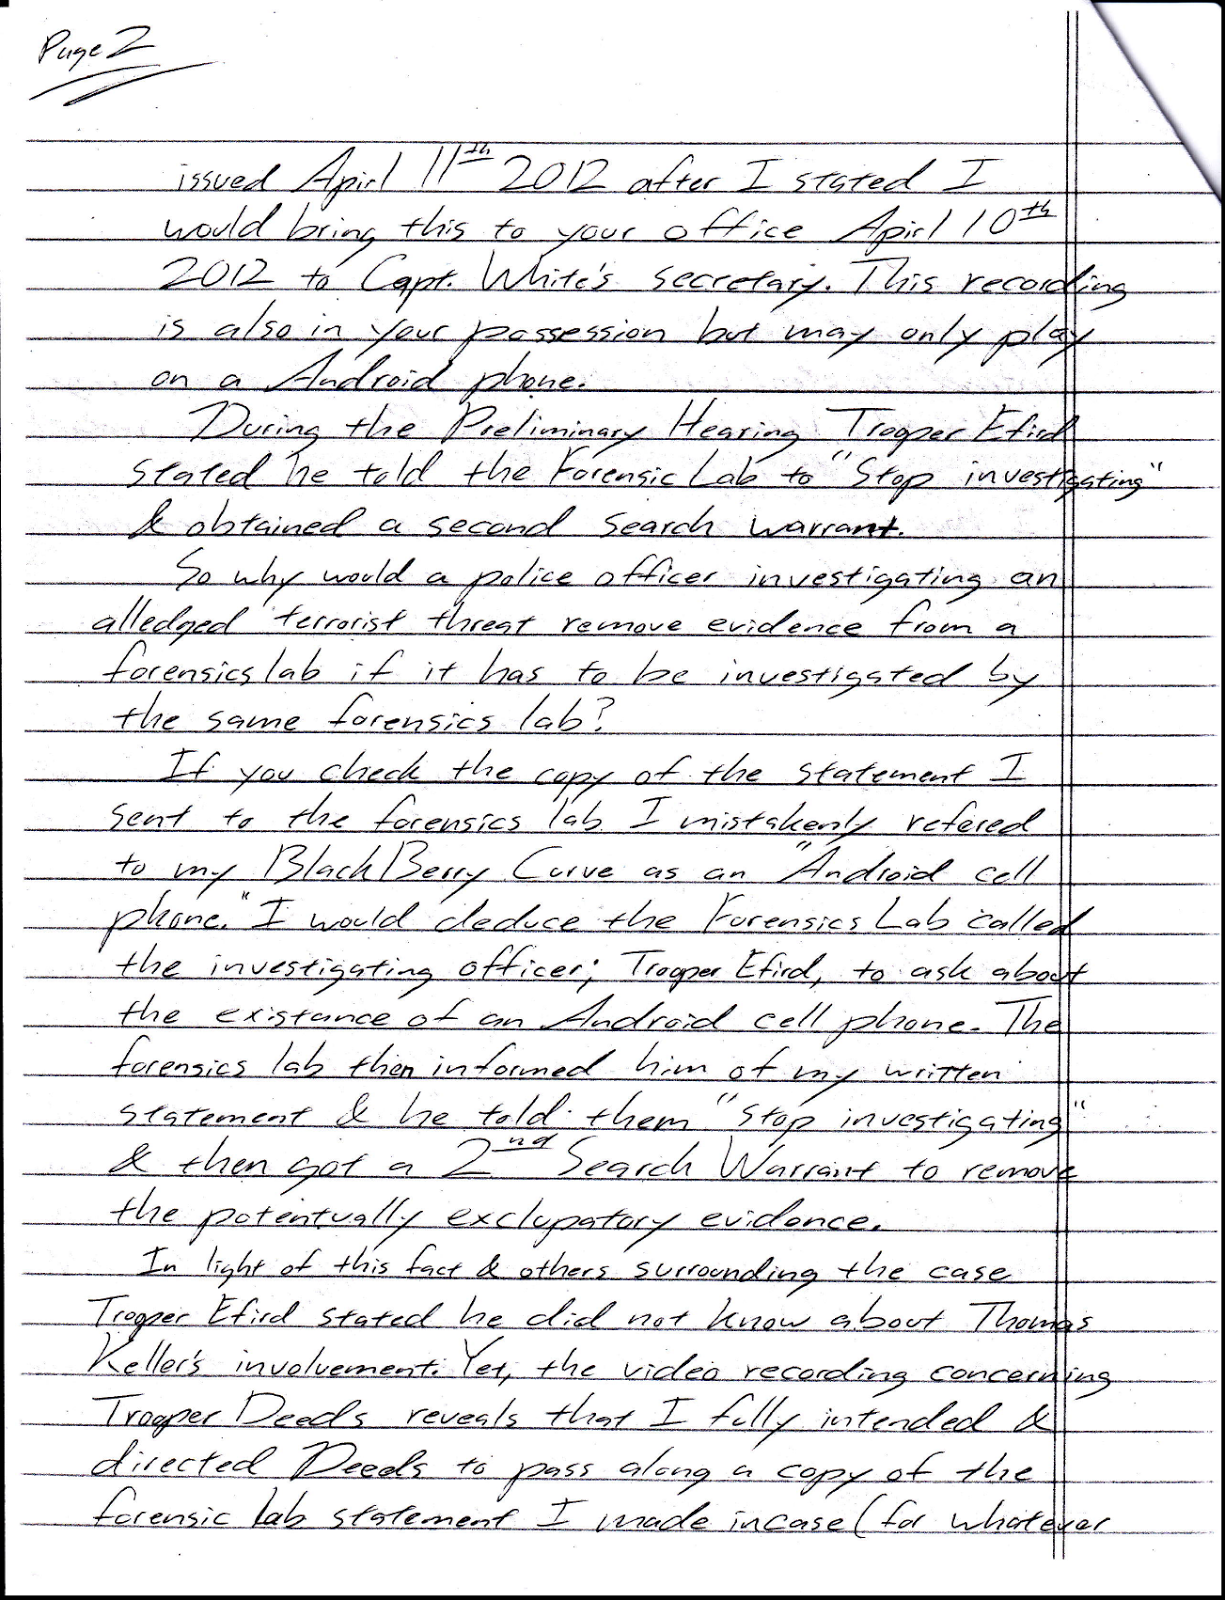 Page 2
issued Apirl 11th 2012 after I stated I
would bring this to your office Apirl 10th
2012 to Capt. White's secretary. This recording
is also in your possession but may only play
on a Android phone.
During the Preliminary Hearing Trooper Efird
stated he told the Forensic Lab to "Stop investigating"
& obtained a second search warrant.
So why would a police officer investigating an
alledged terrorist threat remove evidence from a
forensics lab if it has to be investigated by
the same forensics lab?
If you check the copy of the statement I
sent to the forensics lab I mistakenly refered
to my BlackBerry Curve as an "Android cell
phone." I would deduce the Forensics Lab called
the investigating officer; Trooper Efird, to ask about
the existance of an Android cell phone. The
forensics lab then informed him of my written
statement & he told them "stop investigating"
& then got a 2nd Search Warrant to remove
the potentually exclupatory evidence.
In light of this fact & others surrounding the case
Trooper Efird stated he did not know about Thomas
Keller's involvement. Yet, the video recording concerning
Trooper Deeds reveals that I fully intended &
directed Deeds to pass along a copy of the
forensic lab statement I made incase (for whatever